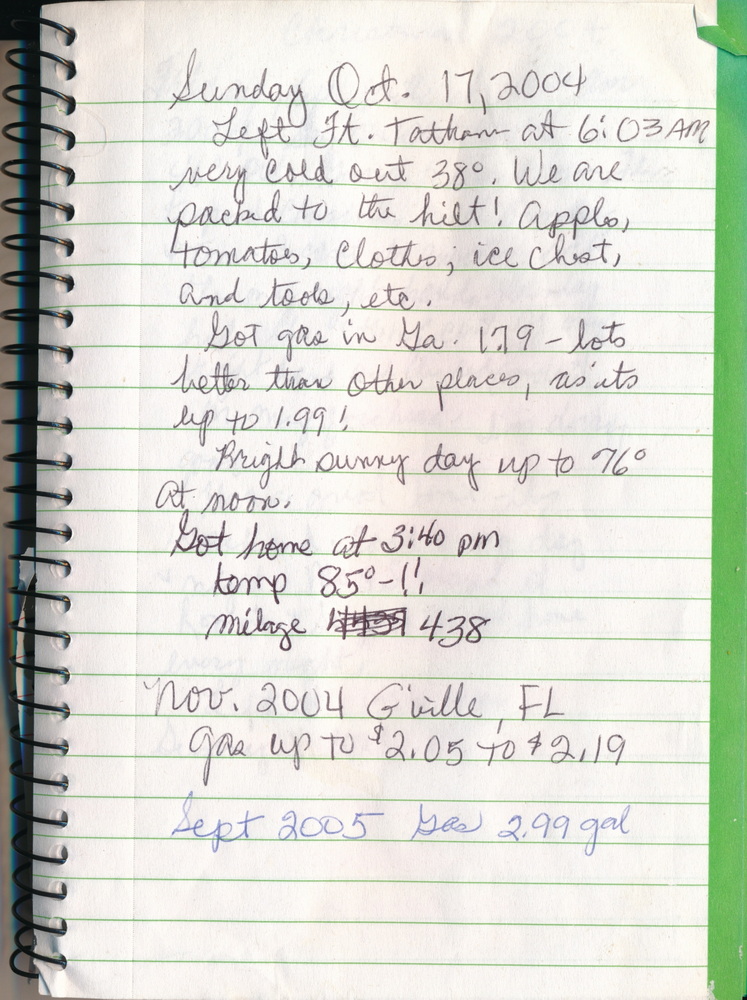 Sunday Oct. 17, 2004
Left Ft. Tatham at 6:03 AM
very cold out 38°. We are
packed to the hilt! Apples,
tomatoes, Clothes, ice chest,
and tools, etc.
Got gas in Ga. 1.79 - lots
better than other places, as its
up to 1.99!
Bright sunny day up to 76°
at noon.
Got home at 3:40 pm
temp 85° - !!
milage 438
Nov. 2004 G'ville, FL
gas up to $2.05 to $2.19
Sept 2005 Gas 2.99 gal